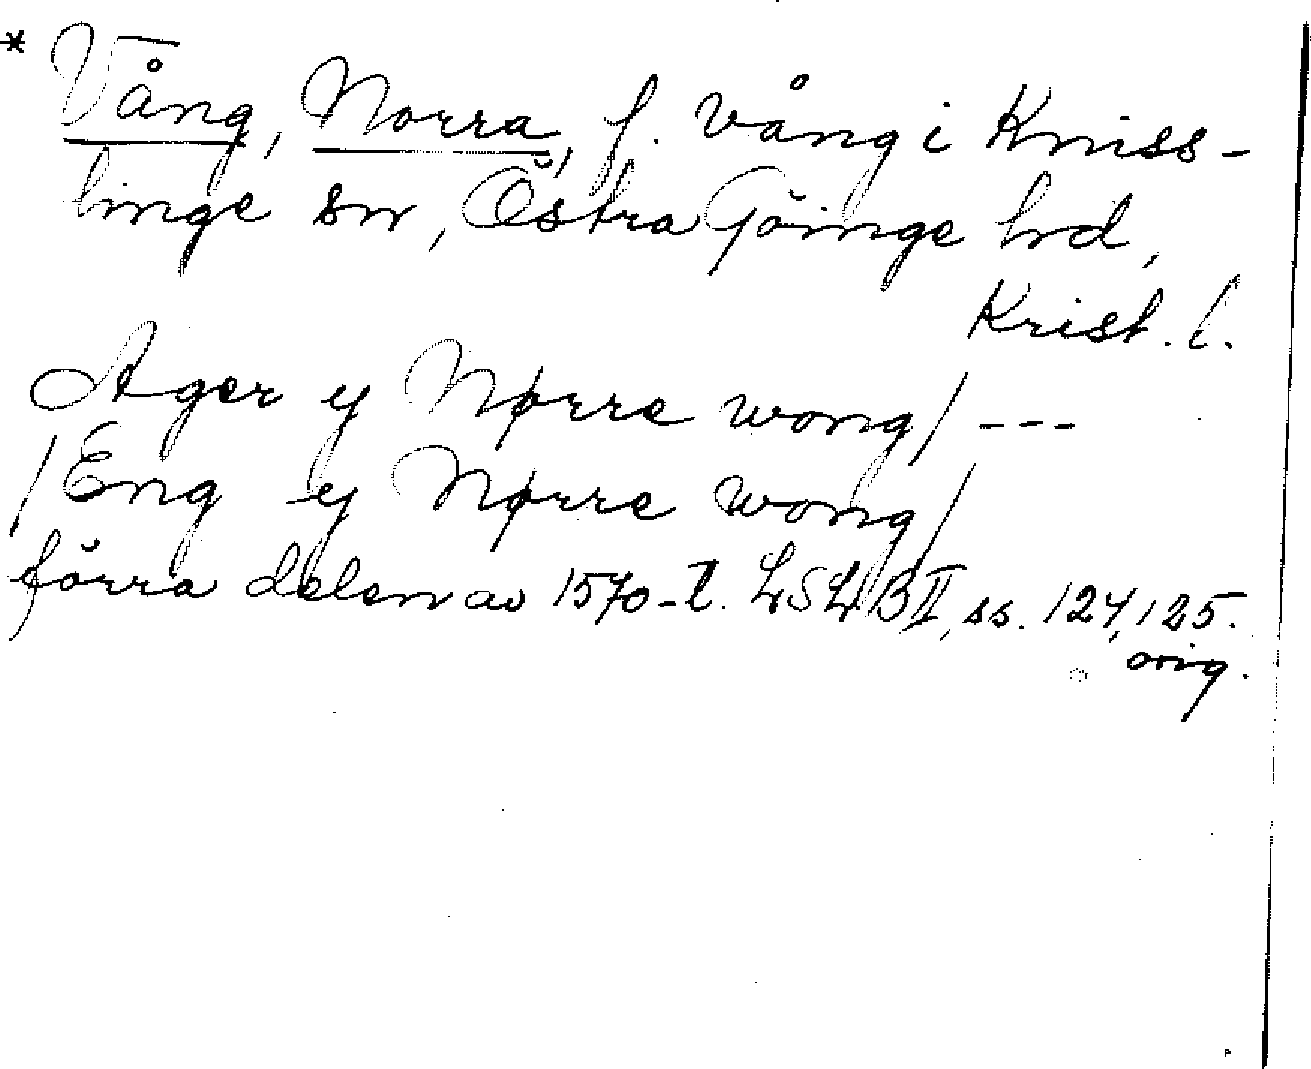 * Vång, Norra, f. vång i Kniss-
linge sn, Östra Göinge hrd,
Krist. l.
Ager y Nørre wong/ ---
/Eng y Nørre wong/
förra delen av 1570-t. LSLB II, ss. 124, 125.
orig.